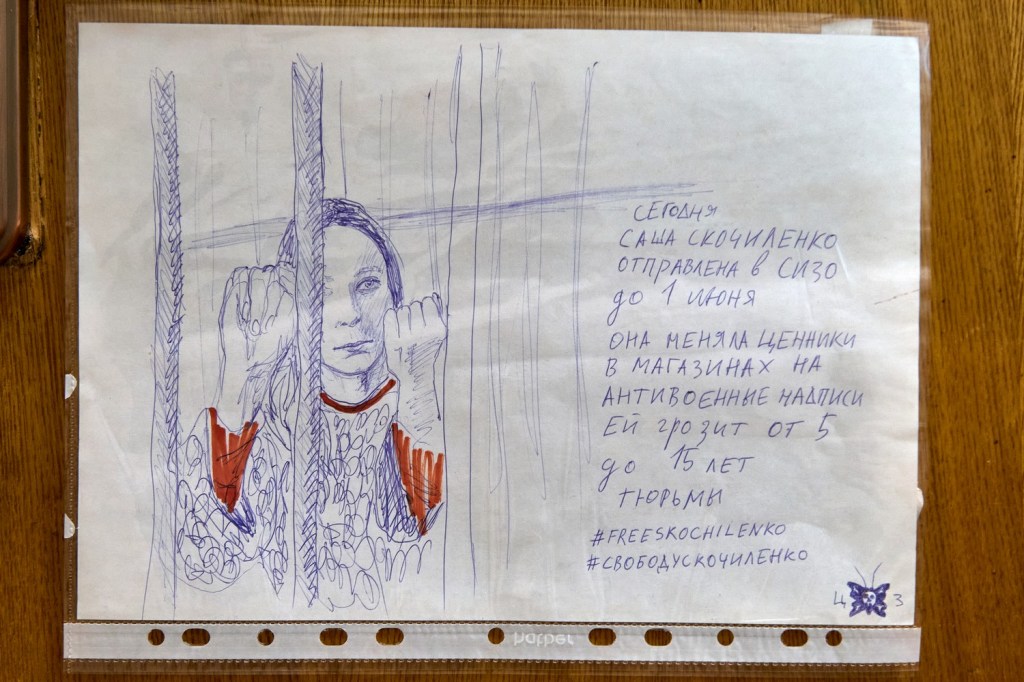 СЕГОДНЯ
САША СКОЧИЛЕНКО
ОТПРАВЛЕНА В СИЗО
до 1 ИЮНЯ
ОНА МЕНЯЛА ЦЕННИКИ
В МАГАЗИНАХ НА
АНТИВОЕННЫЕ НАДПИСИ
ЕЙ ГРОЗИТ ОТ 5
до 15 ЛЕТ
ТЮРЬМЫ
#FREESKOCHILENKO
#СВОБОДУСКОЧИЛЕНКО
Ц З